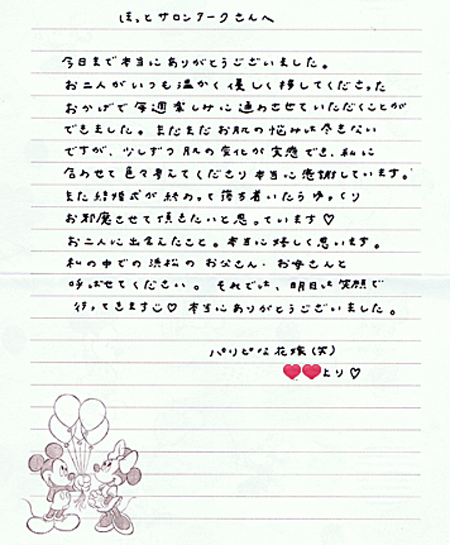 ほっとサロンアークさんへ
今日まで本当にありがとうございました。
お二人がいつも温かく優しく接してくださった
おかげで毎週楽しみに通わせていただくことが
できました。まだまだお肌の悩みは尽きない
ですが、少しずつ肌の変化が実感でき、私に
合わせて色々考えてくださり本当に感謝しています。
また結婚式が終わって落ち着いたらゆっくり
お邪魔させて頂きたいと思っています♡
お二人に出会えたこと。本当に嬉しく思います。
私の中での浜松のお父さん・お母さんと
呼ばせてください。それでは、明日は笑顔で
行ってきます♡ 本当にありがとうございました。
パリピな花嫁(笑)
❤❤より♡